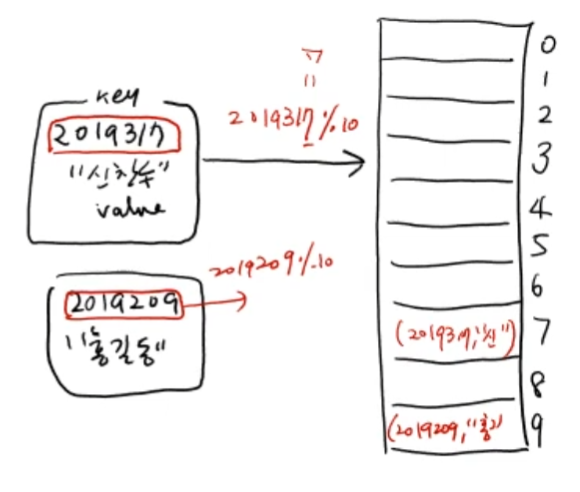 key
2019317
"신찬수"
value
7
"
2019317%10
2019209
"홍길동"
2019209%10
0
1
2
3
4
5
6
(2019317,"신") 7
8
(2019209,"홍") 9